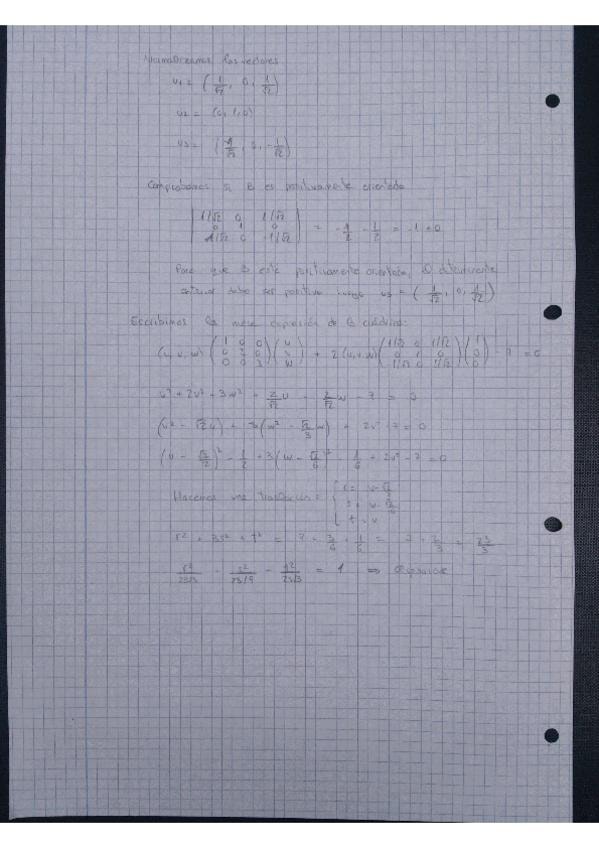 Normalizamos los vectores
u1 = (1/√2, 0, 1/√2)
u2 = (0, 1, 0)
u3 = (1/√2, 0, -1/√2)
Comprobamos si B es positivamente orientada
| 1/√2 0 1/√2 |
| 0 1 0 | = -1/2 - 1/2 = -1 < 0
| 1/√2 0 -1/√2 |
Para que B esté positivamente orientada, el determinante
debe ser positivo luego u3 = (1/√2, 0, 1/√2)
Escribimos la nueva expresión de la cuádrica:
(u, v, w) (1 0 0 / 0 2 0 / 0 0 3) (u / v / w) + 2 (u, v, w) (1/√2 0 1/√2 / 0 1 0 / -1/√2 0 1/√2) (1 / 0 / 0) - 7 = 0
u² + 2v² + 3w² + 2/√2 u - 2/√2 w - 7 = 0
(u² - √2 u) + 3(w² - √2/3 w) + 2v² - 7 = 0
(u - √2/2)² - 1/2 + 3(w - √2/6)² - 1/6 + 2v² - 7 = 0
Hacemos una traslación = { r = u - √2/2
s = w - √2/6
t = v
r² + 3s² + t² = 7 + = 7 + 2/3 = 23/3
r²/23/3 - s²/23/9 - t²/23/3 = 1 ⇒ elipsoide